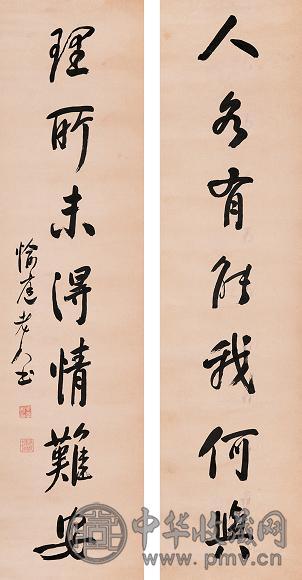 人各有能我何與
理所未得情難安
愉庭老人書
中华收藏网
www.pmv.cn